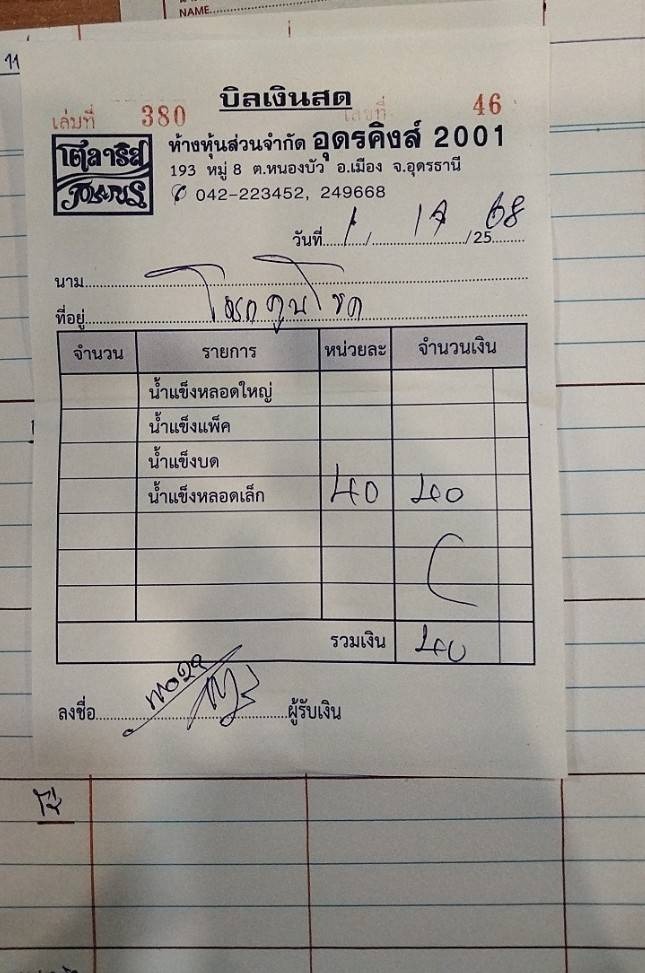 NAME
11
บิลเงินสด
เล่มที่ 380 เลขที่ 46
ห้างหุ้นส่วนจำกัด อุดรคิงส์ 2001
193 หมู่ 8 ต.หนองบัว อ.เมือง จ.อุดรธานี
042-223452, 249668
วันที่ 1 / / 25 68
นาม
ที่อยู่
จำนวน รายการ หน่วยละ จำนวนเงิน
น้ำแข็งหลอดใหญ่
น้ำแข็งแพ็ค
น้ำแข็งบด
น้ำแข็งหลอดเล็ก 40 40
รวมเงิน 40
ลงชื่อ ผู้รับเงิน